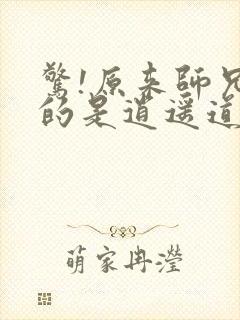 驚!原來師兄
的是逍遥道
萌家冉瀅